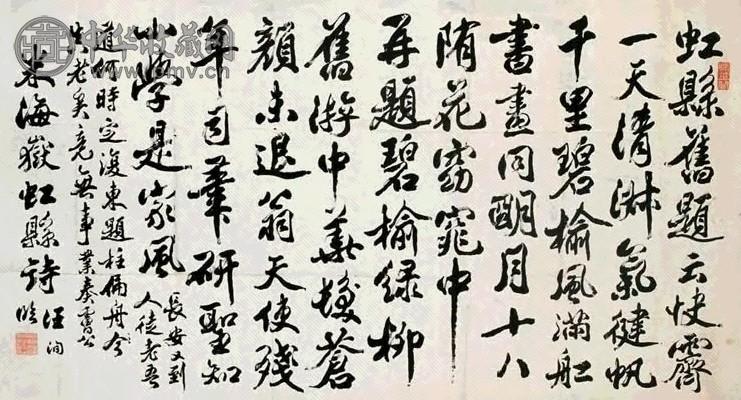 虹縣舊題云快霽
一天清淑氣健帆
千里碧榆風滿舡
書畫同明月十八
隋花窈窕中
再題碧榆綠柳
舊游中華髮蒼
顏未退翁天使殘
年司筆研聖知
小學是家風
長安又到
人徒老吾
道何時定復東題柱偏舟今
真老矣竟無事業奏膚公
米海嶽虹縣詩
汪洵
臨
中华收藏网